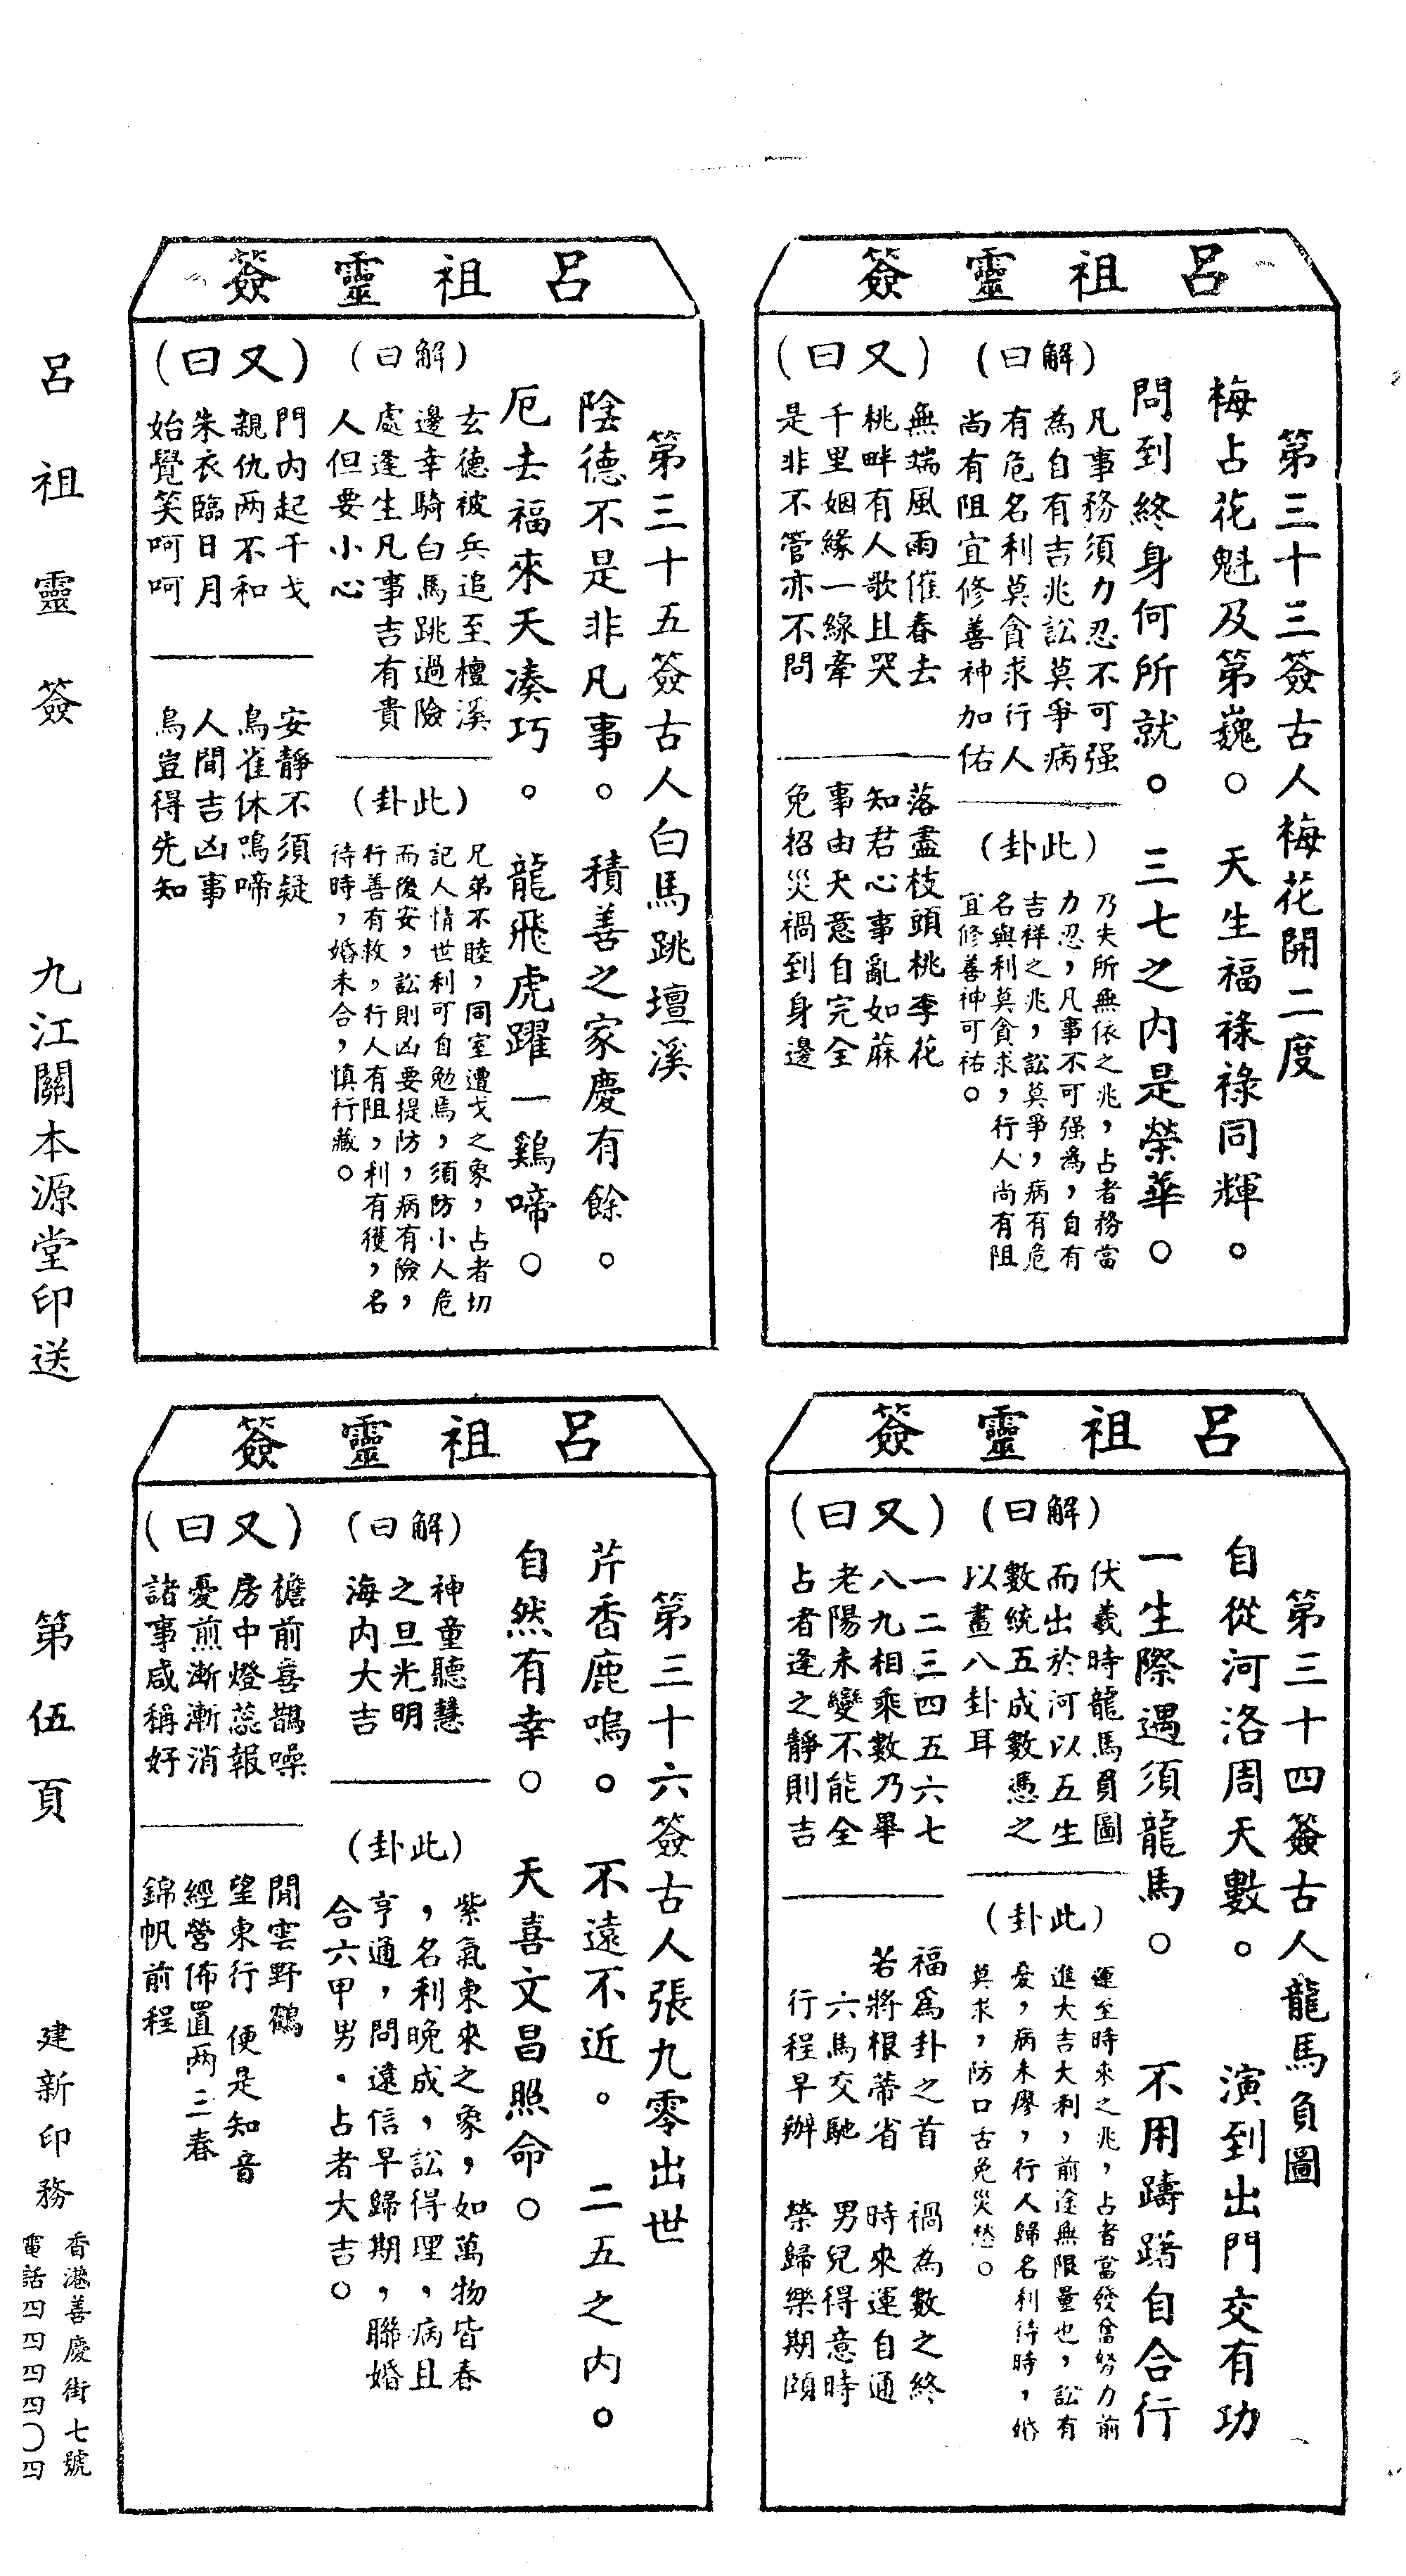 呂祖靈簽
第三十三簽古人梅花開二度
梅占花魁及第巍。天生福祿祿同輝。
問到終身何所就。三七之內是榮華。
(解曰)
凡事務須力忍不可强
為自有吉兆訟莫爭病
有危名利莫貪求行人
尚有阻宜修善神加佑
(此卦)
乃失所無依之兆,占者務當
力忍,凡事不可强為,自有
吉祥之兆,訟莫爭,病有危
名與利莫貪求,行人尚有阻
宜修善神可祐。
(又曰)
無端風雨催春去
桃畔有人歌且哭
千里姻緣一線牽
是非不管亦不問
落盡枝頭桃李花
知君心事亂如蔴
事由天意自完全
免招災禍到身邊
呂祖靈簽
第三十四簽古人龍馬負圖
自從河洛周天數。演到出門交有功
一生際遇須龍馬。不用躊躇自合行
(解曰)
伏羲時龍馬負圖
而出於河以五生
數統五成數憑之
以畫八卦耳
(此卦)
運至時來之兆,占者當發奮努力前
進大吉大利,前途無限量也,訟有
憂,病未瘳,行人歸名利待時,婚
莫求,防口舌免災愁。
(又曰)
一二三四五六七
八九相乘數乃畢
老陽未變不能全
占者逢之靜則吉
福為卦之首 禍為數之終
若將根蒂省 時來運自通
六馬交馳 男兒得意時
行程早辦 榮歸樂期頤
呂祖靈簽
第三十五簽古人白馬跳壇溪
陰德不是非凡事。積善之家慶有餘。
厄去福來天凑巧。龍飛虎躍一鷄啼。
(解曰)
玄德被兵追至檀溪
邊幸騎白馬跳過險
處逢生凡事吉有貴
人但要小心
(此卦)
兄弟不睦,同室遭戈之象,占者切
記人情世利可自勉焉,須防小人危
而後安,訟則凶要提防,病有險,
行善有救,行人有阻,利有獲,名
待時,婚未合,慎行藏。
(又曰)
門內起干戈
親仇两不和
朱衣臨日月
始覺笑呵呵
安靜不須疑
鳥雀休鳴啼
人間吉凶事
鳥豈得先知
呂祖靈簽
第三十六簽古人張九零出世
芹香鹿鳴。不遠不近。二五之內。
自然有幸。天喜文昌照命。
(解曰)
神童聽慧
之旦光明
海內大吉
(此卦)
紫氣東來之象,如萬物皆春
,名利晚成,訟得理,病且
亨通,問遠信早歸期,聯婚
合六甲男.占者大吉。
(又曰)
檐前喜鵲噪
房中燈蕊報
憂煎漸漸消
諸事咸稱好
閒雲野鶴
望東行 便是知音
經營佈置两三春
錦帆前程
呂祖靈簽 九江關本源堂印送 第伍頁 建新印務
香港善慶街七號
電話四四四四〇四